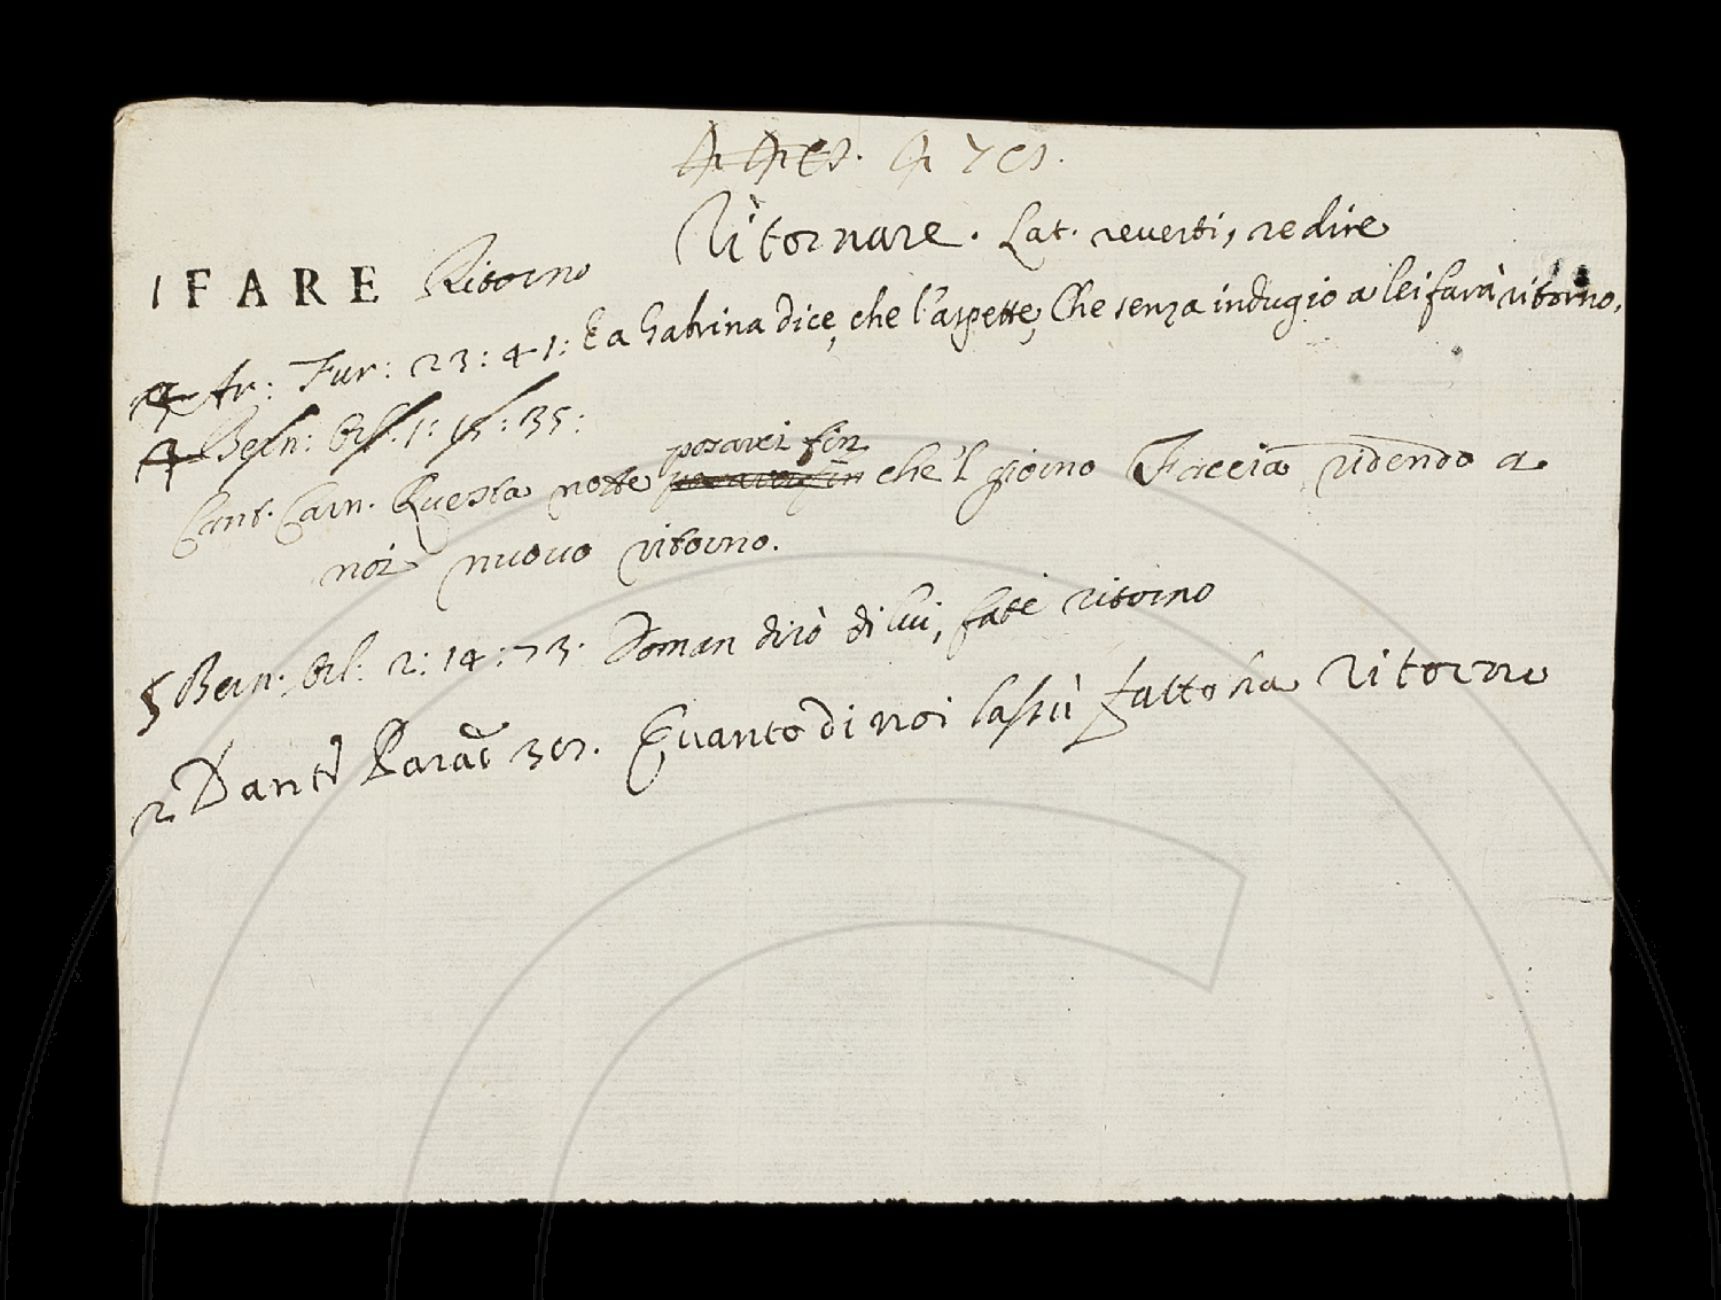 Ritornare. Lat. reverti, redire
1 FARE Ritorno
Ar: Fur: 23: 41: E a Gabrina dice, che l'aspette, Che senza indugio a lei farà ritorno.
4 Bern: Orl: 1: 15: 35:
Cant. Carn. Questa notte posarci fin che'l giorno Faccia ridendo a
noi nuovo ritorno.
5 Bern. Orl: 2: 14: 73. Doman dirò di lui, fate ritorno
2 Dant. Parad 30. Quanto di noi lassù fatto ha ritorno